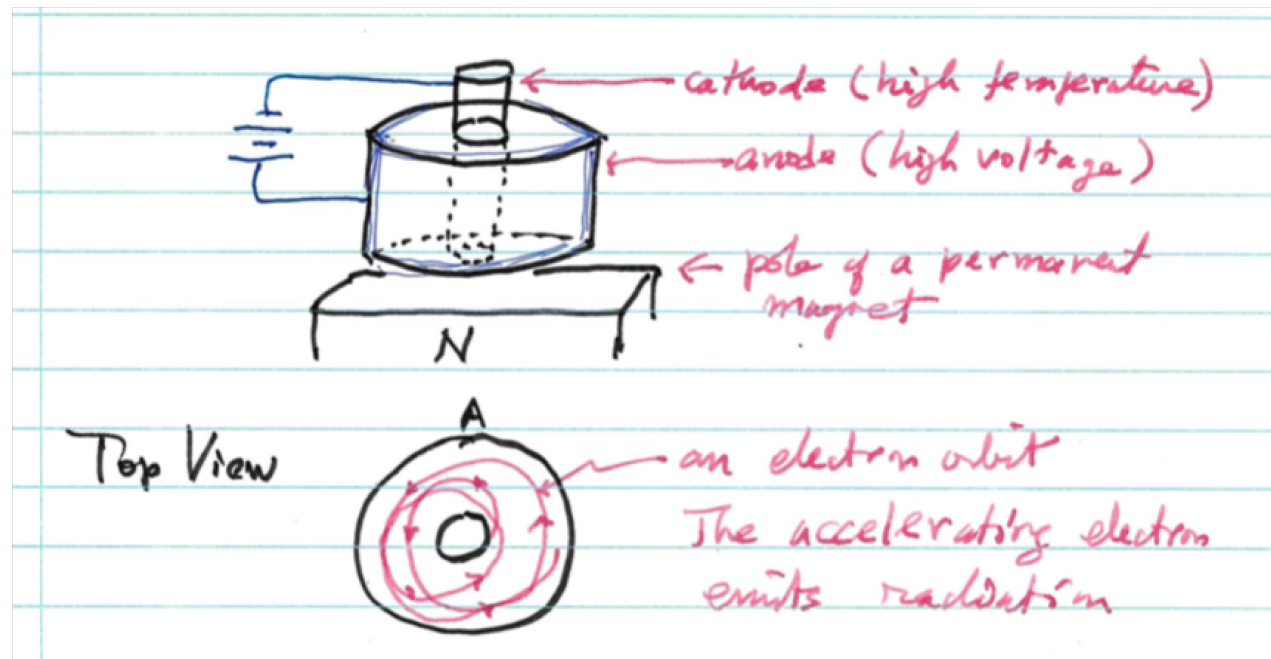 cathode (high temperature)
anode (high voltage)
← pole of a permanent
magnet
N
A
Top View
an electron orbit
The accelerating electron
emits radiation